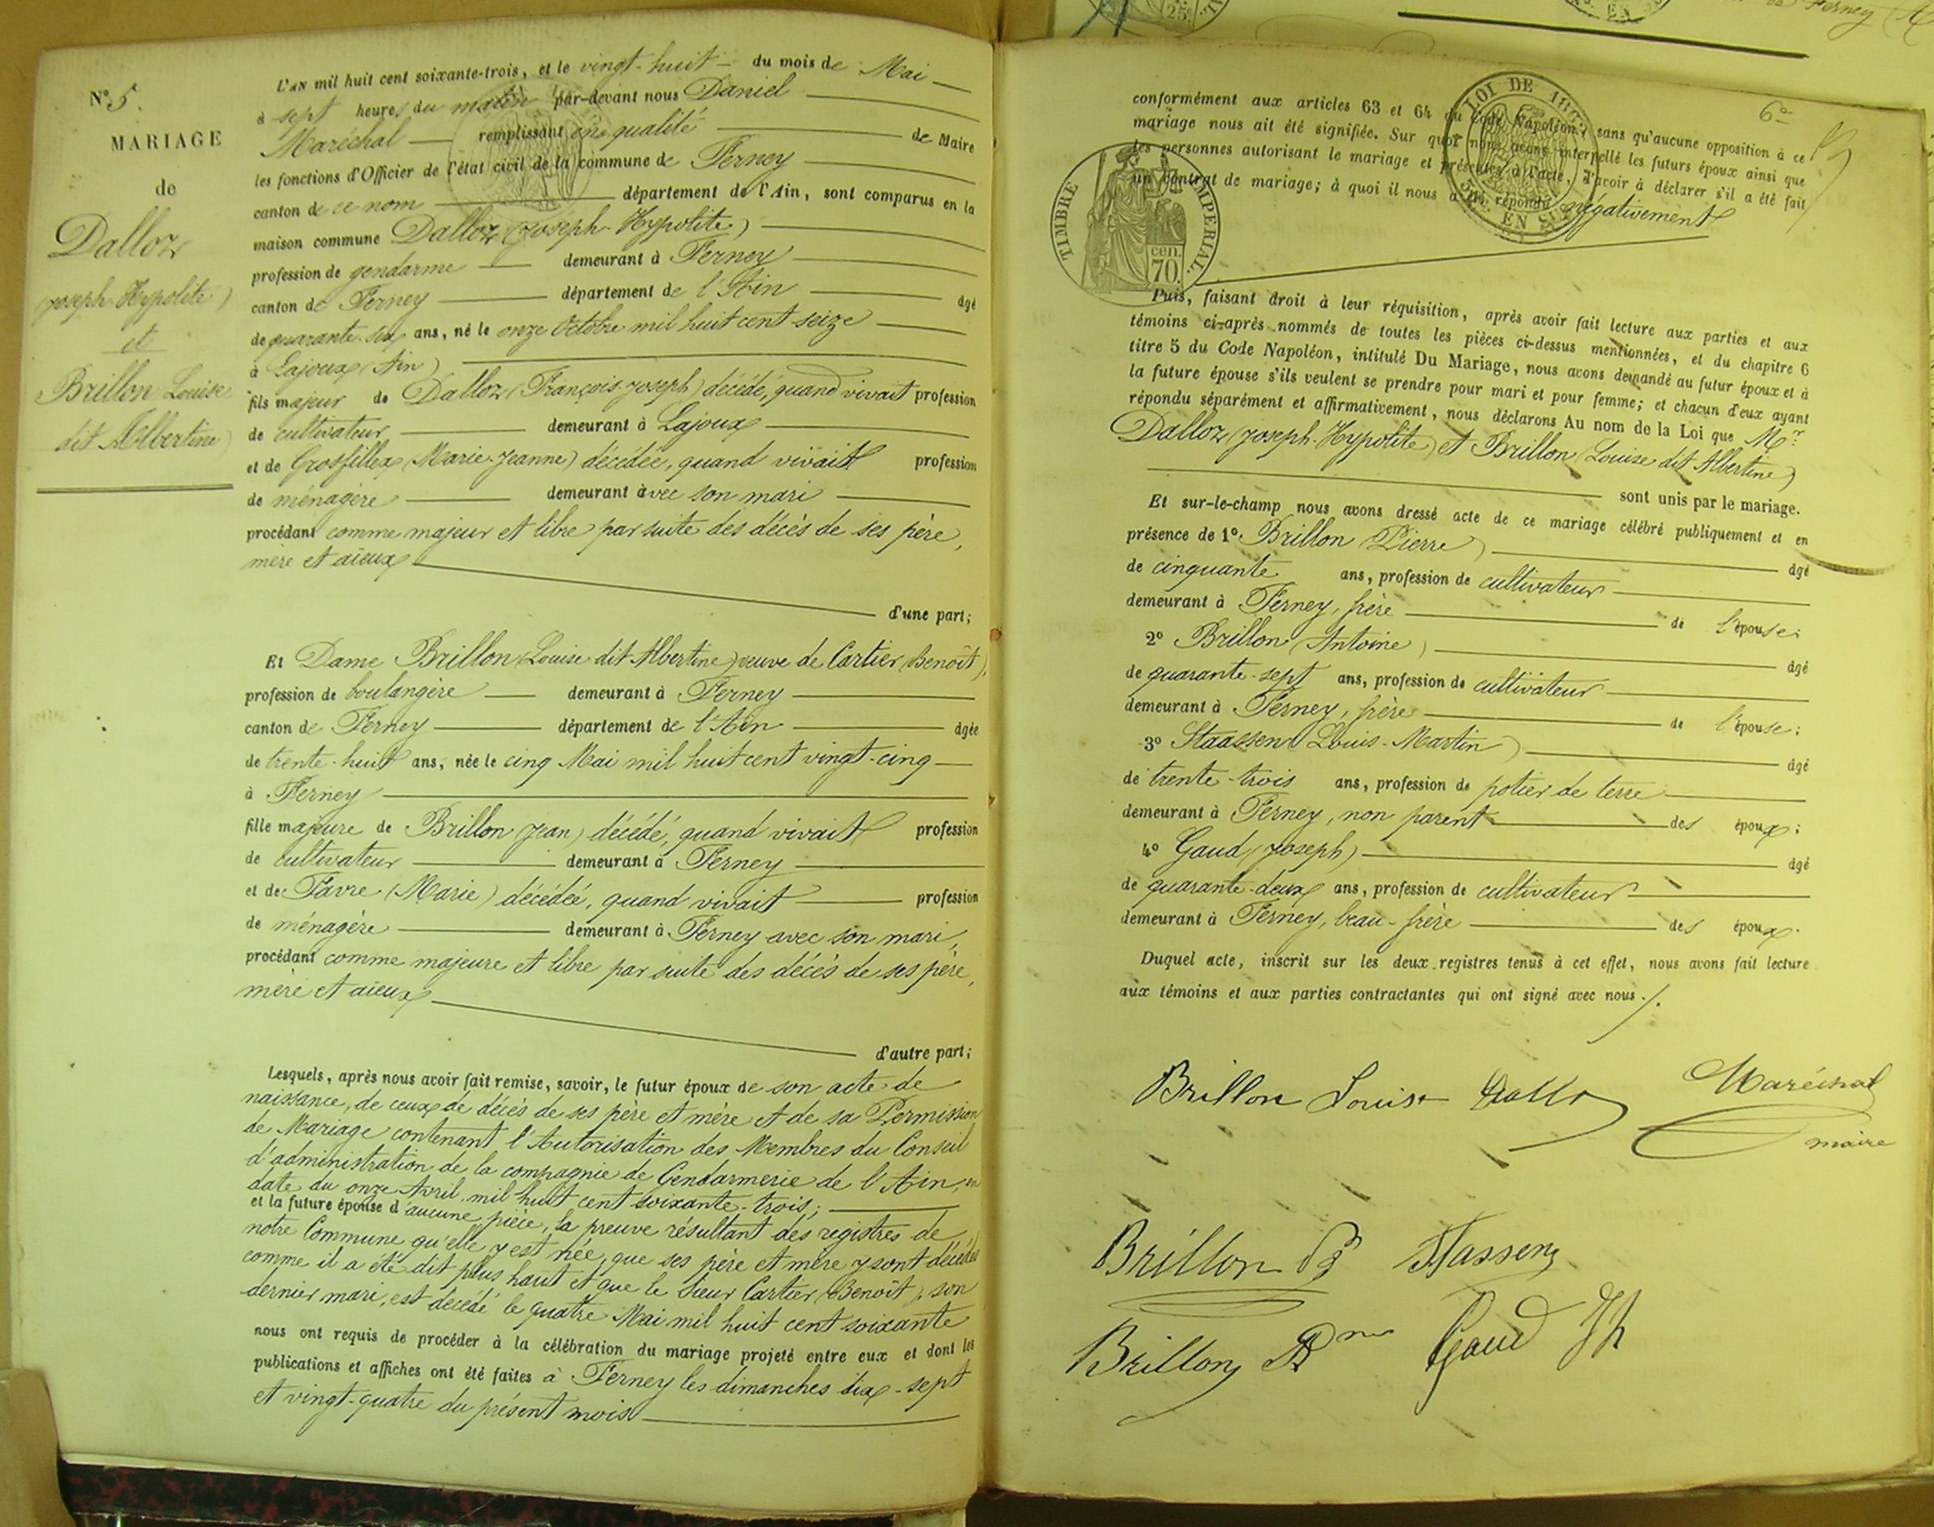 N° 5.
MARIAGE
de
Dalloz
(Joseph-Hypolite)
et
Brillon Louise
dit Albertine)
L'AN mil huit cent soixante-trois, et le vingt-huit du mois de Mai
à sept heures du matin par-devant nous Daniel
Maréchal remplissant en qualité de Maire
les fonctions d'Officier de l'état civil de la commune de Ferney
canton de ce nom département de l'Ain, sont comparus en la
maison commune Dalloz (Joseph-Hypolite)
profession de gendarme demeurant à Ferney
canton de Ferney département de l'Ain âgé
de quarante-six ans, né le onze Octobre mil huit cent seize
à Lajoux (Ain)
fils majeur de Dalloz (François Joseph) décédé, quand vivait profession
de cultivateur demeurant à Lajoux
et de Grosfillex (Marie-Jeanne) décédée, quand vivait profession
de ménagère demeurant avec son mari
procédant comme majeur et libre par suite des décès de ses père,
mère et aïeux
d'une part;
Et Dame Brillon (Louise dit Albertine) veuve de Cartier (Benoît),
profession de boulangère demeurant à Ferney
canton de Ferney département de l'Ain âgée
de trente-huit ans, née le cinq Mai mil huit cent vingt-cinq
à Ferney
fille majeure de Brillon (Jean) décédé, quand vivait profession
de cultivateur demeurant à Ferney
et de Favre (Marie) décédée, quand vivait profession
de ménagère demeurant à Ferney avec son mari,
procédant comme majeure et libre par suite des décès de ses père,
mère et aïeux
d'autre part;
Lesquels, après nous avoir fait remise, savoir, le futur époux de son acte de
naissance, de ceux de décès de ses père et mère et de sa Permission
de Mariage contenant l'Autorisation des Membres du Conseil
d'administration de la compagnie de Gendarmerie de l'Ain, en
date du onze Avril mil huit cent soixante-trois;
et la future épouse d'aucune pièce, la preuve résultant des registres de
notre Commune qu'elle y est née, que ses père et mère y sont décédés
comme il a été dit plus haut et que le Sieur Cartier (Benoît), son
dernier mari, est décédé le quatre Mai mil huit cent soixante
nous ont requis de procéder à la célébration du mariage projeté entre eux et dont les
publications et affiches ont été faites à Ferney les dimanches dix-sept
et vingt-quatre du présent mois
conformément aux articles 63 et 64 du Code Napoléon, sans qu'aucune opposition à ce
mariage nous ait été signifiée. Sur quoi nous avons interpellé les futurs époux ainsi que
les personnes autorisant le mariage et présentes à l'acte, d'avoir à déclarer s'il a été fait
un contrat de mariage; à quoi il nous a été répondu négativement
6e
LOI DE
TIMBRE IMPERIAL.
70. cen.
Puis, faisant droit à leur réquisition, après avoir fait lecture aux parties et aux
témoins ci-après nommés de toutes les pièces ci-dessus mentionnées, et du chapitre 6
titre 5 du Code Napoléon, intitulé Du Mariage, nous avons demandé au futur époux et à
la future épouse s'ils veulent se prendre pour mari et pour femme; et chacun d'eux ayant
répondu séparément et affirmativement, nous déclarons Au nom de la Loi que Mr.
Dalloz (Joseph-Hypolite) et Brillon (Louise dit Albertine)
sont unis par le mariage.
Et sur-le-champ nous avons dressé acte de ce mariage célébré publiquement et en
présence de 1° Brillon (Pierre) âgé
de cinquante ans, profession de cultivateur
demeurant à Ferney, frère de l'épouse;
2° Brillon (Antoine) âgé
de quarante-sept ans, profession de cultivateur
demeurant à Ferney, frère de l'épouse;
3° Staassen (Louis-Martin) âgé
de trente-trois ans, profession de potier de terre
demeurant à Ferney, non parent des époux;
4° Gaud (Joseph) âgé
de quarante-deux ans, profession de cultivateur
demeurant à Ferney, beau-frère des époux.
Duquel acte, inscrit sur les deux registres tenus à cet effet, nous avons fait lecture
aux témoins et aux parties contractantes qui ont signé avec nous./.
Brillon Louise Dalloz Maréchal
maire
Brillon P Stassen
Brillon Ane Gaud Jh